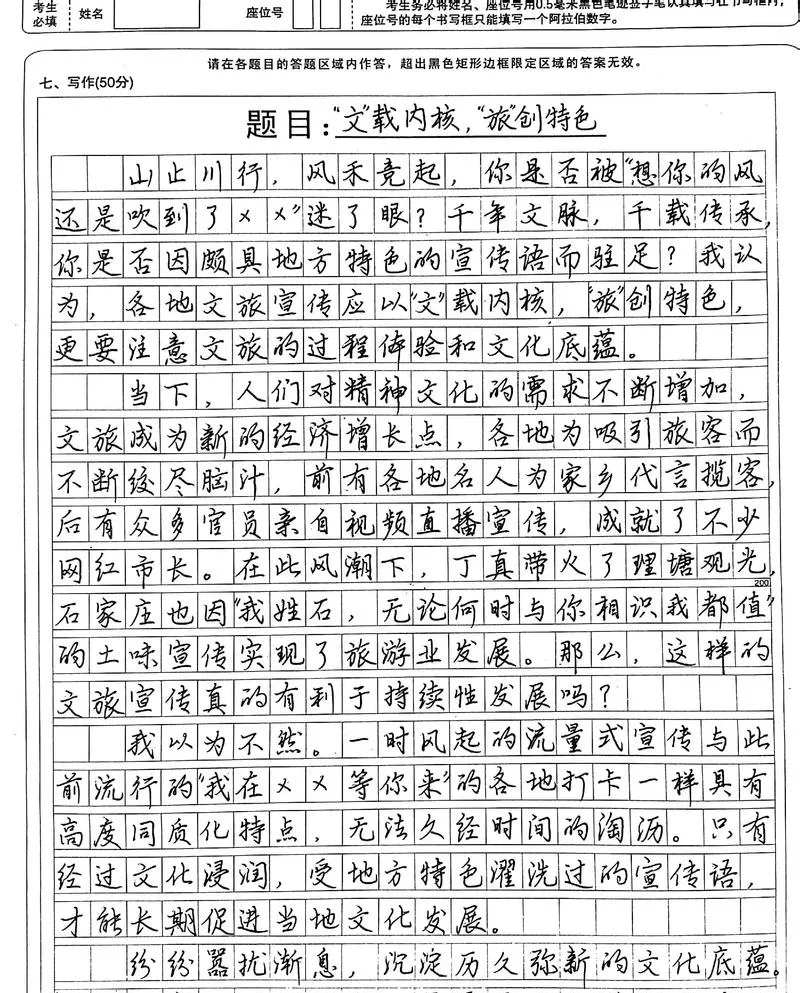 考生
必填
姓名
座位号
考生务必将姓名、座位号用0.5毫米黑色笔迹签字笔认真填写在书写框内,
座位号的每个书写框只能填写一个阿拉伯数字。
请在各题目的答题区域内作答，超出黑色矩形边框限定区域的答案无效。
七、写作(50分)
题目："文"载内核，"旅"创特色
山止川行，风禾竞起，你是否被"想你的风
还是吹到了××"迷了眼？千年文脉，千载传承，
你是否因颇具地方特色的宣传语而驻足？我认
为，各地文旅宣传应以"文"载内核，"旅"创特色，
更要注意文旅的过程体验和文化底蕴。
当下，人们对精神文化的需求不断增加，
文旅成为新的经济增长点，各地为吸引旅客而
不断绞尽脑汁，前有各地名人为家乡代言揽客，
后有众多官员亲自视频直播宣传，成就了不少
网红市长。在此风潮下，丁真带火了理塘观光，
200
石家庄也因"我姓石，无论何时与你相识我都值"
的土味宣传实现了旅游业发展。那么，这样的
文旅宣传真的有利于持续性发展吗？
我以为不然。一时风起的流量式宣传与此
前流行的"我在××等你来"的各地打卡一样具有
高度同质化特点，无法久经时间的淘沥。只有
经过文化浸润，受地方特色濯洗过的宣传语，
才能长期促进当地文化发展。
纷纷嚣扰渐息，沉淀历久弥新的文化底蕴。